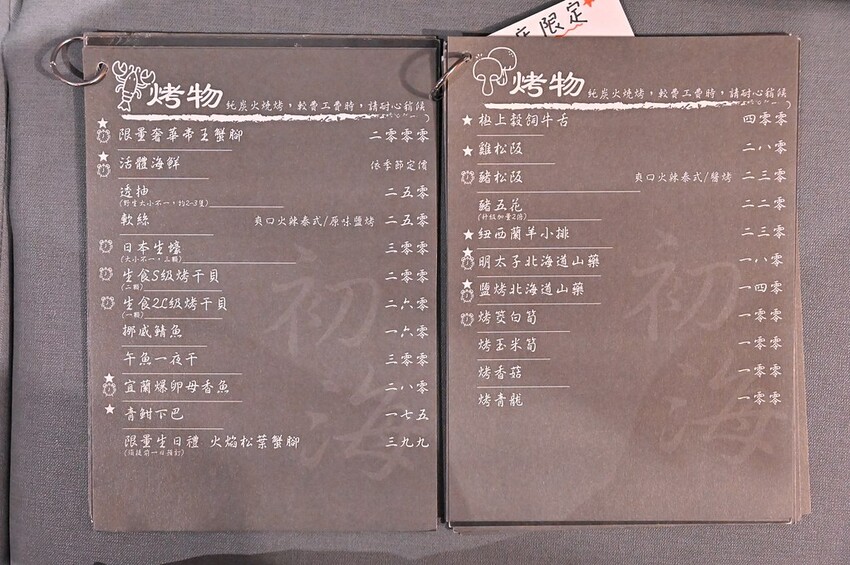 店限定
烤物 純炭火燒烤，較費工費時，請耐心稍候
限量奢華帝王蟹腳 二零零零
活體海鮮 依季節定價
透抽 二五零
(野生大小不一，約2-3隻)
軟絲 爽口火辣泰式/原味鹽烤 二五零
日本生蠔 三零零
(大小不一，三顆)
生食S級烤干貝 二零零
(二顆)
生食2L級烤干貝 二六零
(一顆)
挪威鯖魚 一六零
午魚一夜干 三零零
宜蘭爆卵母香魚 二八零
青魽下巴 一七五
限量生日禮 火焰松葉蟹腳 三九九
(須提前一日預訂)
初海
烤物 純炭火燒烤，較費工費時，請耐心稍候
極上穀飼牛舌 四零零
雞松阪 二八零
豬松阪 爽口火辣泰式/醬烤 二三零
豬五花 二二零
(升級加量2倍)
紐西蘭羊小排 二三零
明太子北海道山藥 一八零
鹽烤北海道山藥 一四零
烤茭白筍 一零零
烤玉米筍 一零零
烤香菇 一零零
烤青龍 一零零
初海